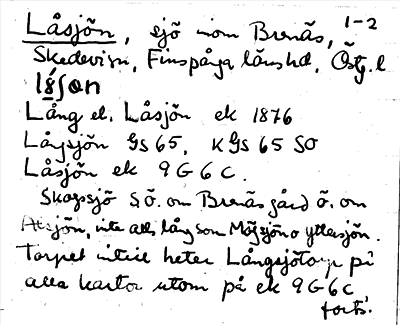 1-2
Låsjön, sjö inom Brenäs,
Skedevi sn, Finspånga länshd, Östg. l.
Lång el. Låsjön ek 1876
Långsjön GS 65, KGS 65 SO
Låsjön ek 9G6C.
Skogssjö S.Ö. om Brenäs gård ö. om
sjön, inte alls lång som Mögsjön o yttersjön.
Torpet intill heter Långsjötorp på
alla kartor utom på ek 9G6C
forts.